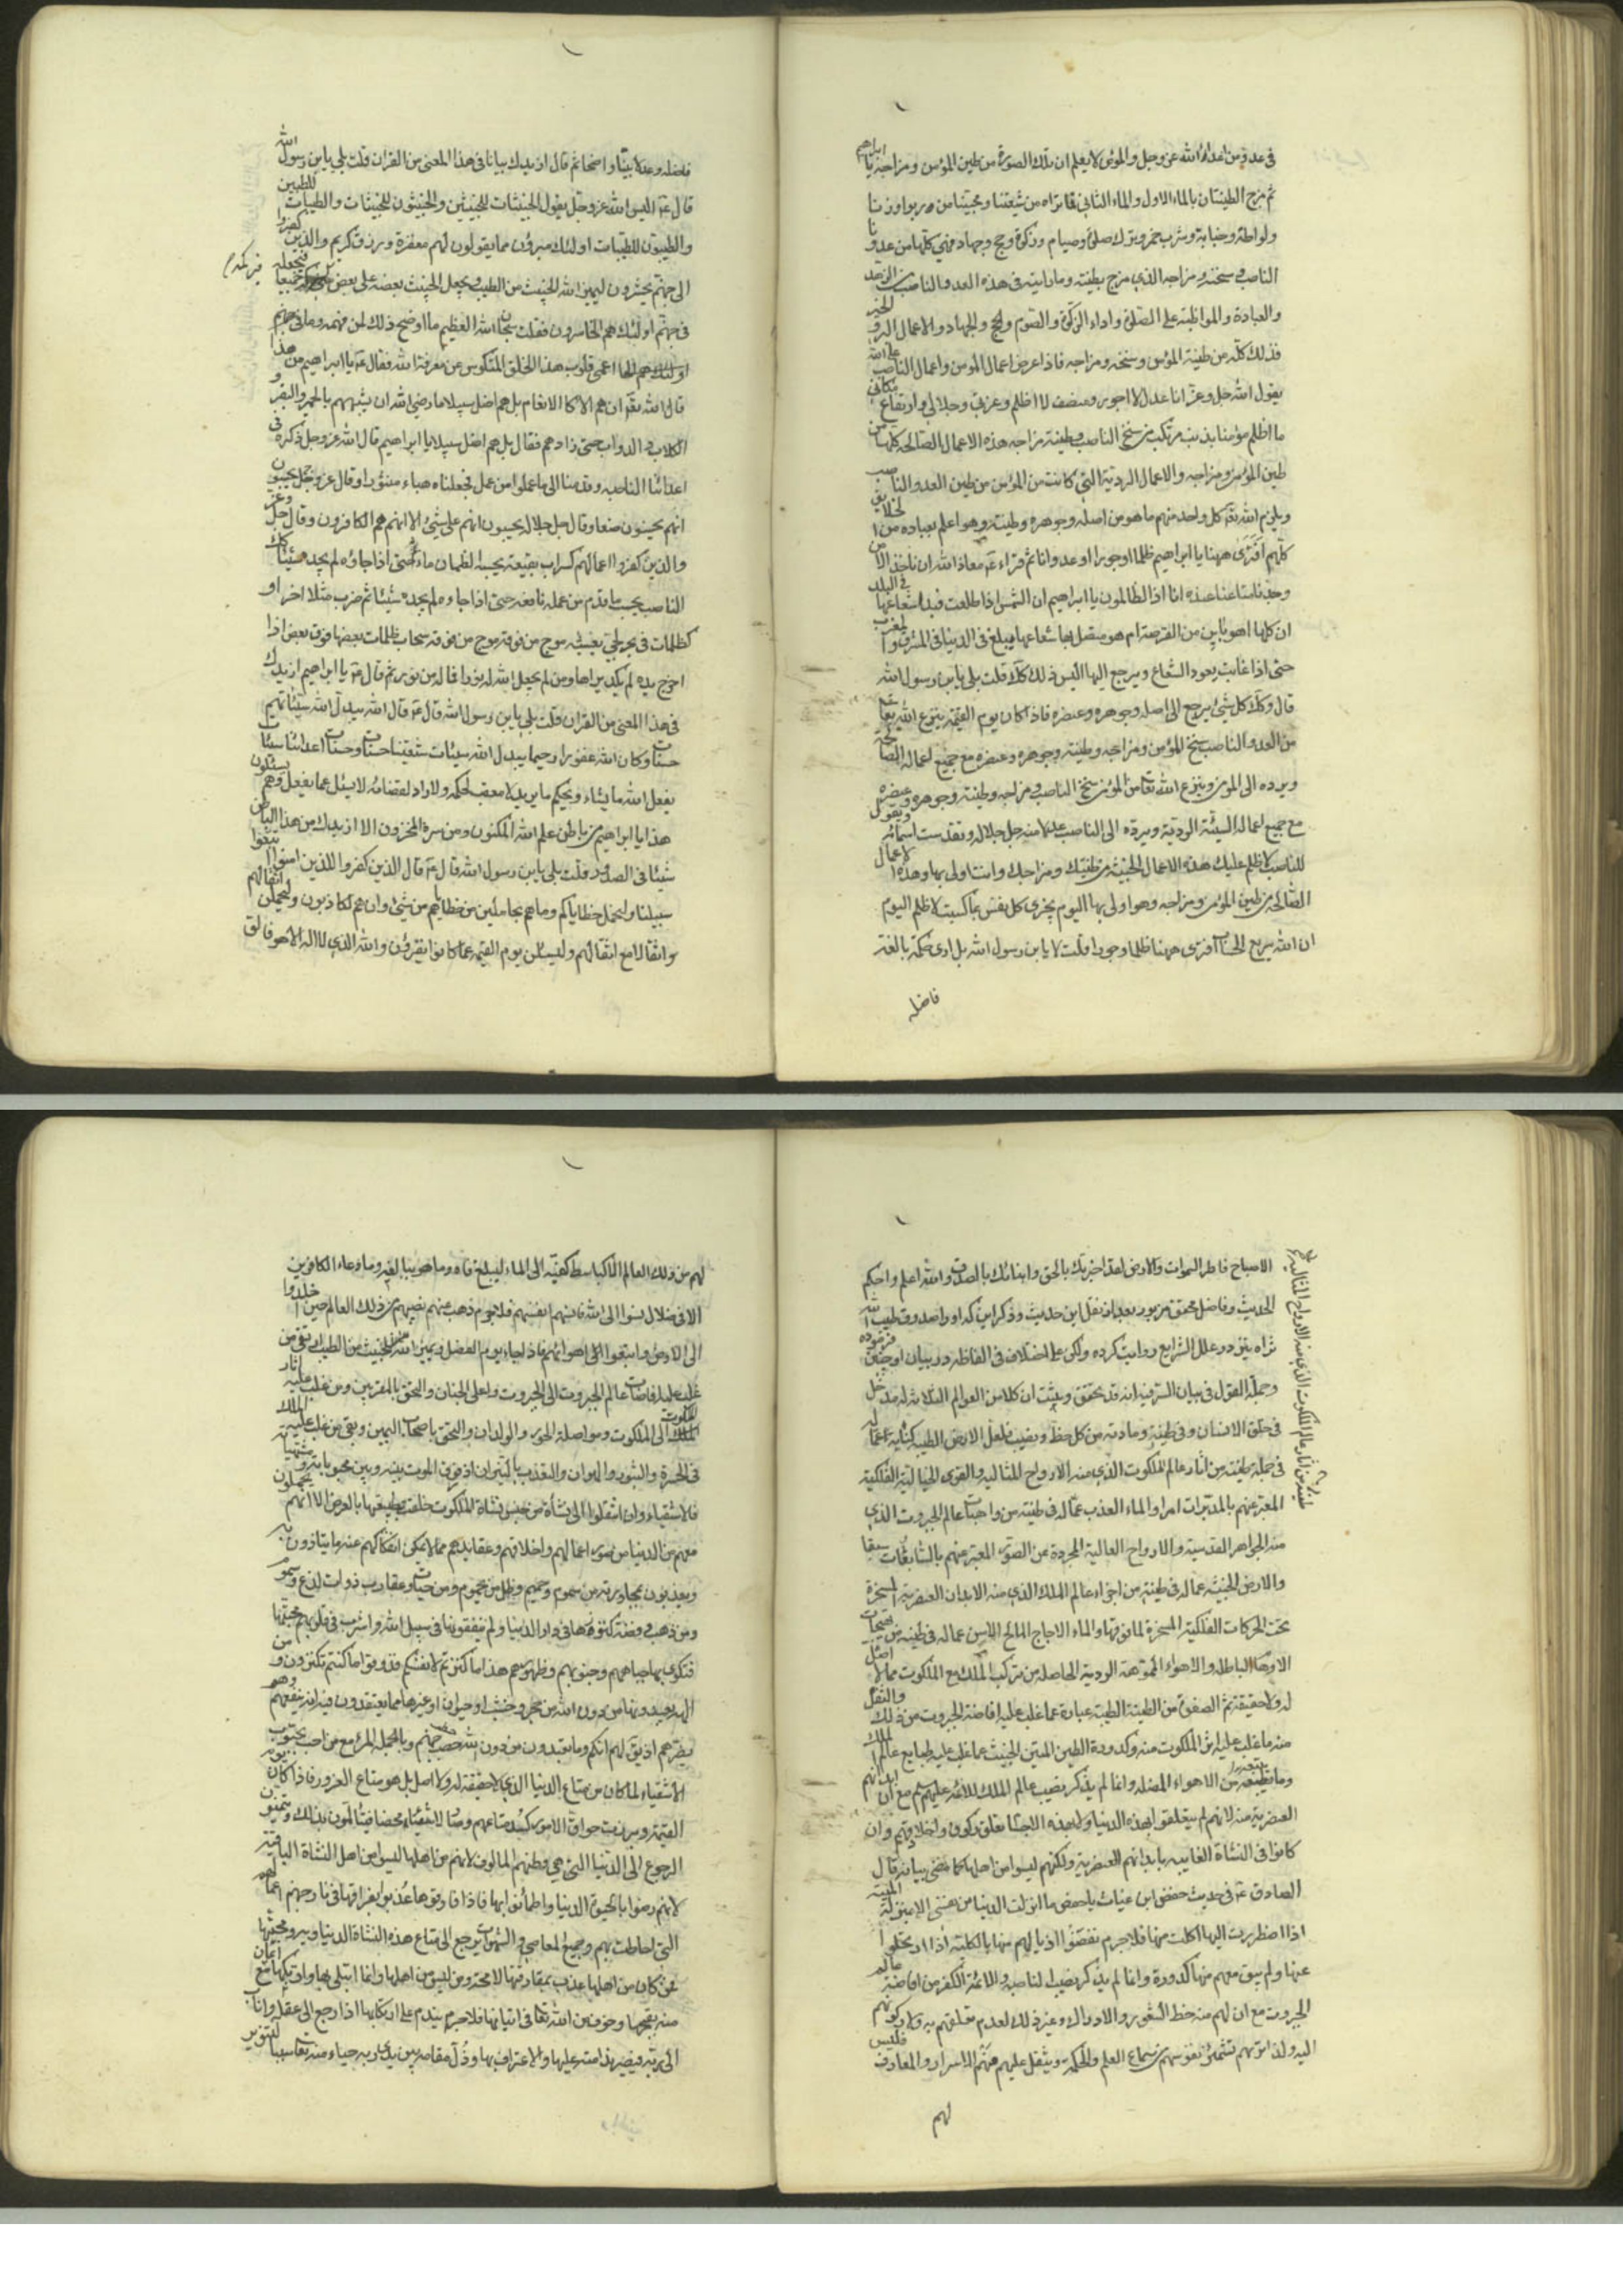 في عدو من اعداء الله عز وجل والمؤمن لا يعلم ان تلك الصورة من طين المؤمن ومزاجه يا ابراهيم
ثم مزج الطينتان بالماء الاول والماء الثاني فما تراه من شيعتنا ومحبينا من ربوا وزنا
ولواطة وخيانة وشرب خمر وترك صلوة وصيام وزكوة وحج وجهاد فهي كلها من عدونا
الناصب وسنخه ومزاجه الذي مزج بطينته وما رايته في هذه العدو الناصب من الزهد
والعبادة والمواظبة على الصلوة واداء الزكوة والصوم والحج والجهاد والاعمال البر والخير
فذلك كله من طينة المؤمن وسنخه ومزاجه فاذا عرض اعمال المؤمن واعمال الناصب على الله
يقول الله جل وعز انا عدل لا اجور ومنصف لا اظلم وعزتي وجلالي وارتفاع مكاني
ما اظلم مؤمنا بذنب مرتكب من سنخ الناصب وطينته ومزاجه هذه الاعمال الصالحة كلها من
طين المؤمن ومزاجه والاعمال الردية التي كانت من المؤمن من طين العدو الناصب
ويلزم الله تعم كل واحد منهم ما هو من اصله وجوهره وطينته وهو اعلم بعباده من الخلايق
كلهم افترى ههنا يا ابراهيم ظلما او جورا او عدوانا ثم قراء عم معاذ الله ان ناخذ الا من
وجدنا متاعنا عنده انا اذا لظالمون يا ابراهيم ان الشمس اذا طلعت فبدا شعاعها في البلد
ان كلها اهو باين من القرصة ام هو متصل بها شعاعها يبلغ في الدنيا في المشرق والمغرب
حتى اذا غابت يعود الشعاع ويرجع اليها اليس ذلك كك قلت بلى يابن رسول الله
قال وكك كل شيئ يرجع الى اصله وجوهره وعنصره فاذا كان يوم القيمة ينزع الله تعالى
من العدو الناصب سنخ المؤمن ومزاجه وطينته وجوهره وعنصره مع جميع اعماله الصالحة
ويرده الى المؤمن وينزع الله تعا من المؤمن سنخ الناصب ومزاجه وطينته وجوهره وعنصره
مع جميع اعماله السيئة الردية ويرده الى الناصب عدلا منه جل جلاله وتقدست اسمائه ويقول
للناصب لا ظلم عليك هذه الاعمال الخبيثة من طينتك ومزاجك وانت اولى بها وهذه الاعمال
الصالحة من طين المؤمن ومزاجه وهو اولى بها اليوم تجزى كل نفس بما كسبت لا ظلم اليوم
ان الله سريع الحساب افترى ههنا ظلما وجورا قلت لا يابن رسول الله بل ارى حكمة بالغة
فاضلة
فاضلة وعدلا بينا واضحا ثم قال ازيدك بيانا في هذا المعنى من القران قلت بلى يابن رسول الله
قال عم اليس الله عز وجل يقول الخبيثات للخبيثين والخبيثون للخبيثات والطيبات للطيبين
والطيبون للطيبات اولئك مبرؤن مما يقولون لهم مغفرة ورزق كريم والذين كفروا
الى جهنم يحشرون ليميز الله الخبيث من الطيب ويجعل الخبيث بعضه على بعض فيركمه جميعا فيجعله
في جهنم اولئك هم الخاسرون فقلت سبحان الله العظيم ما اوضح ذلك لمن فهمه وما
اعمى قلوب هذا الخلق المنكوس عن معرفة الله فقال عم يا ابراهيم من هذا
قال الله تعم ان هم الا كالانعام بل هم اضل سبيلا ما رضي الله ان يشبههم بالحمير والبقر و
الكلاب والدواب حتى زادهم فقال بل هم اضل سبيلا يا ابراهيم قال الله عز وجل ذكره في
اعدائنا الناصبه وقدمنا الى ما عملوا من عمل فجعلناه هباء منثورا وقال عز وجل يحسبون
انهم يحسنون صنعا وقال جل جلاله يحسبون انهم على شيئ الا انهم هم الكافرون وقال جل وعز
والذين كفروا اعمالهم كسراب بقيعة يحسبه الظمان ماء حتى اذا جاؤه لم يجده شيئا كك
الناصب يحسب ما قدم من عمله نافعه حتى اذا جاءه لم يجده شيئا ثم ضرب مثلا اخر او
كظلمات في بحر لجي يغشيه موج من فوقه موج من فوقه سحاب ظلمات بعضها فوق بعض اذا
اخرج يده لم يكد يراها ومن لم يجعل الله له نورا فما له من نور ثم قال عم يا ابراهيم ازيدك
في هذا المعنى من القران قلت بلى يابن رسول الله قال عم قال الله يبدل الله سيئاتهم
حسنات وكان الله غفورا رحيما يبدل الله سيئات شيعتنا حسنات وحسنات اعدائنا سيئات
يفعل الله ما يشاء ويحكم ما يريد لا معقب لحكمه ولا راد لقضائه لا يسئل عما يفعل وهم يسئلون
هذا يا ابراهيم من باطن علم الله المكنون ومن سره المخزون الا ازيدك من هذا الباطن
شيئا في الصدور قلت بلى يابن رسول الله قال عم قال الذين كفروا للذين امنوا اتبعوا
سبيلنا ولنحمل خطاياكم وما هم بحاملين من خطاياهم من شيئ وان هم لكاذبون وليحملن اثقالهم
واثقالا مع اثقالهم وليسئلن يوم القيمة عما كانوا يفترون والله الذي لا اله الا هو فالق
الاصباح فاطر السموات والارض لقد اخبرتك بالحق وانبئتك بالصدق والله اعلم واحكم
الحديث وفاضل محقق مزبور بعد از نقل اين حديث وذكر اين كه او را صدوق طيب الله
ثراه نيز در علل الشرايع روايت كرده ولكن على اختلاف في الفاظه در بيان او چنين فرموده
وجملة القول في بيان السر فيه انه قد تحقق وثبت ان كلا من العوالم الثلاثة له مدخل
في خلق الانسان وفي طينته ومادته من كل حظ ونصيب فلعل الارض الطيبه كناية عما له
في جملة طينته من اثار عالم الملكوت الذي منه الارواح المثالية والقوى الخيالية الفلكية
المعبر عنهم بالمدبرات امرا والماء العذب عما له في طينته من واهبات عالم الجبروت الذي
منه الجواهر القدسية والارواح العالية المجردة عن الصور المعبر عنهم بالسابقات سبقا
والارض الخبيثة عما له في طينته من اجزاء عالم الملك الذي منه الابدان العنصرية المسخرة
تحت الحركات الفلكية المسخرة لما فوقها والماء الاجاج المالح الاسن عما له في طينته من تهيجات
الاوهام الباطلة والاهواء المموهة الردية الحاصلة من تركيب الملك مع الملكوت مما لا اصل
له ولا حقيقة ثم الصفوة من الطينة الطيبة عبارة عما غلب عليه افاضة الجبروت من ذلك والثفل
منه ما غلب عليه اثر الملكوت منه وكدورة الطين المنتن الخبيث عما غلب عليه طبايع عالم الملك
وما يتبعه من الاهواء المضلة وانما لم يذكر نصيب عالم الملك للائمة عليهم سم مع ان ابدانهم
العنصرية منه لانهم لم يتعلقوا بهذه الدنيا ولا بهذه الاجساد تعلق ركون واخلاد فهم وان
كانوا في النشاة الفانية بابدانهم العنصرية ولكنهم ليسوا من اهلها كما مضى بيانه قال
الصادق عم في حديث حفص ابن غياث يا حفص ما انزلت الدنيا من نفسي الا بمنزلة الميتة
اذا اضطررت اليها اكلت منها فلا جرم نفضوا اذيالهم منها بالكلية اذا ارتحلوا
عنها ولم يبق معهم منها كدورة وانما لم يذكر نصيب الناصب والائمة الكفر من افاضة عالم
الجبروت مع ان لهم منه حظ الشعور والادراك وغير ذلك لعدم تعلقهم به ولا ركونهم
اليه ولذا تراهم تشمئز نفوسهم من سماع العلم والحكمة ويثقل عليهم فهم الاسرار والمعارف فليس
لهم
لهم من ذلك العالم الا كباسط كفيه الى الماء ليبلغ فاه وما هو ببالغه وما دعاء الكافرين
الا في ضلال نسوا الله فانساهم انفسهم فلا جرم ذهب عنهم نصيبهم من ذلك العالم حين اخلدوا
الى الارض واتبعوا اهوائهم فاذا جاء يوم الفصل وميز الله الخبيث من الطيب ارتقى من
غلب عليه افاضات عالم الجبروت الى الجبروت واعلى الجنان والتحق بالمقربين ومن غلب عليه اثار
الملكوت الى الملكوت ومواصلة الحور والولدان والتحق باصحاب اليمين وبقي من غلب عليه الملك
في الحسرة والثبور والهوان والتعذب بالنيران اذ فرق الموت بينه وبين محبوباته ومشتهياته
فالاشقياء وان انتقلوا الى نشأة من جنس نشاة الملكوت خلقت بطبعها بالعرض الا انهم يحملون
معهم من الدنيا من صور اعمالهم واخلاقهم وعقايدهم مما لا يمكن انفكاكهم عنه ما يتاذون به
ويعذبون بمجاورته من سموم وحميم وظل من يحموم ومن حيات وعقارب ذوات لدغ وسموم
ومن ذهب وفضة كنزوها في دار الدنيا ولم ينفقوها في سبيل الله واشرب في قلوبهم محبتها
فتكوى بها جباههم وجنوبهم وظهورهم هذا ما كنزتم لانفسكم فذوقوا ما كنتم تكنزون ومن
الهة يعبدونها من دون الله من حجر وخشب او حيوان او غيرها مما يعتقدون فيه انه ينفعهم وهو
يضرهم اذ يق لهم انكم وما تعبدون من دون الله حصب جهنم وبالجملة المرء مع من احب فمحبوب
الاشقياء لما كان من متاع الدنيا الذي لا حقيقة له ولا اصل بل هو متاع الغرور فاذا كان يوم
القيمة وبرزت حواق الامور كسد متاعهم وصار لا شيئا محضا فيتالمون بذلك ويتمنون
الرجوع الى الدنيا التي هي وطنهم المالوف لانهم من اهلها ليسوا من اهل النشاة الباقية
لانهم رضوا بالحيوة الدنيا واطمأنوا بها فاذا فارقوها عذبوا بفراقها في نار جهنم اعمالهم
التي احاطت بهم وجميع المعاصي والشهوات يرجع الى متاع هذه النشاة الدنياوية ومحبتها
فمن كان من اهلها عذب بمفارقتها لا محة ومن ليس من اهلها وانما ابتلي بها وارتكبها مع ايمان
منه بقبحها وخوف من الله تعا في اتيانها فلا جرم يندم على ارتكابها اذا رجع الى عقله واناب
الى ربه فيصير ندامته عليها والاعتراف بها وذل مقامه بين يدي ربه حياء منه تعا سببا لتنوير